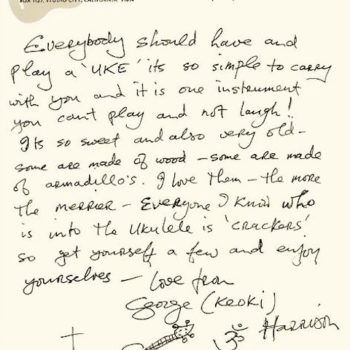 BOX 1107, STUDIO CITY, CALIFORNIA
Everybody should have and
play a 'UKE' its so simple to carry
with you and it is one instrument
you cant play and not laugh!
Its so sweet and also very old -
some are made of wood - some are made
of armadillo's. I love them - the more
the merrier - Everyone I know who
is into the Ukulele is 'crackers'
so get yourself a few and enjoy
yourselves - Love from
George (Keoki)
ॐ Harrison